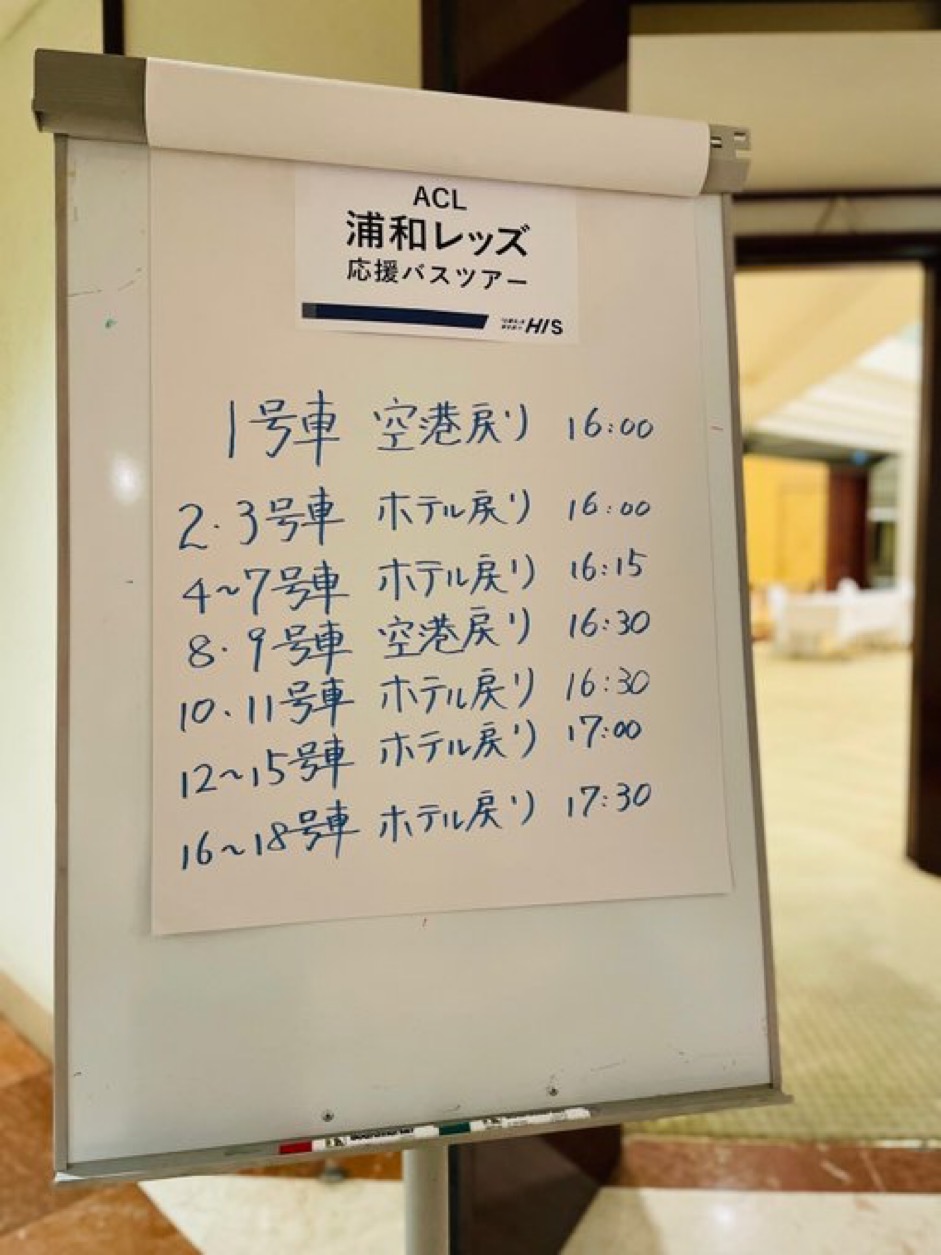 ACL
浦和レッズ
応援バスツアー
HIS
1号車 空港戻り 16:00
2・3号車 ホテル戻り 16:00
4〜7号車 ホテル戻り 16:15
8・9号車 空港戻り 16:30
10・11号車 ホテル戻り 16:30
12〜15号車 ホテル戻り 17:00
16〜18号車 ホテル戻り 17:30